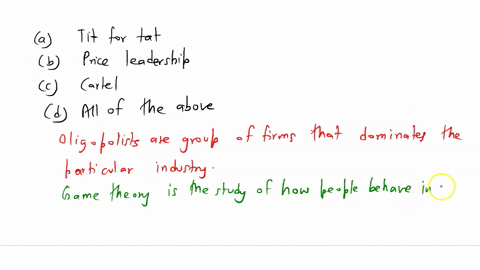 (a) Tit for tat
(b) Price leadership
(c) Cartel
(d) All of the above
Oligopolists are group of firms that dominates the
particular industry.
Game theory is the study of how people behave in